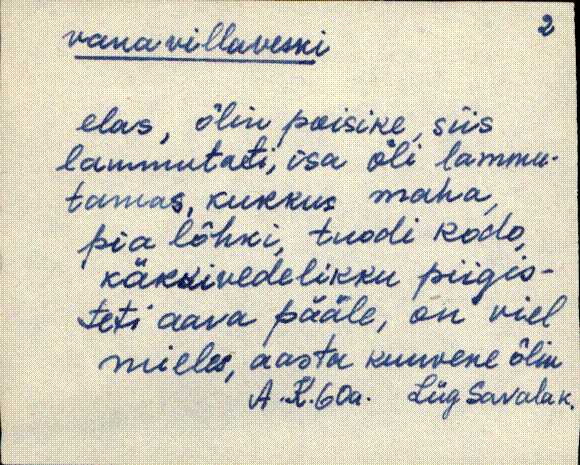 2
vana villaveski
elas, õlin poisike, siis
lammutati, isa õli lammu-
tamas, kukkus maha,
pia lõhki, tuodi kodo,
käkkivedelikku piigis-
teti aava pääle, on viel
mieles, aasta kuuvene õlin
A. K. 60a. Lüg Savalak.